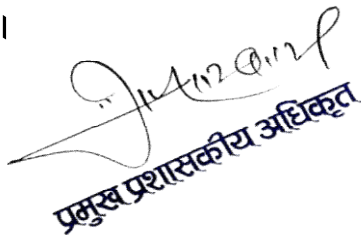 ।
प्रमुख प्रशासकीय अधिकृत